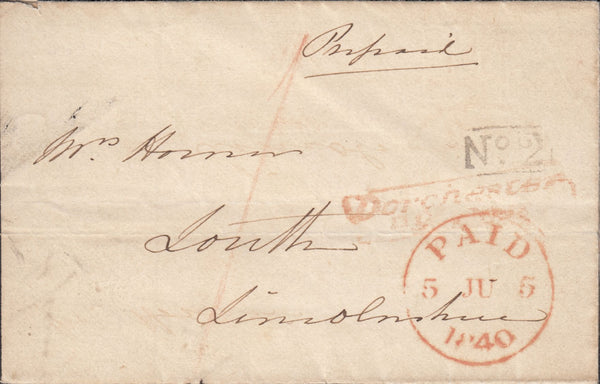 Prepaid
1
Mrs Horner
No. 2
Louth
PAID
5 JU 5
1840
Lincolnshire